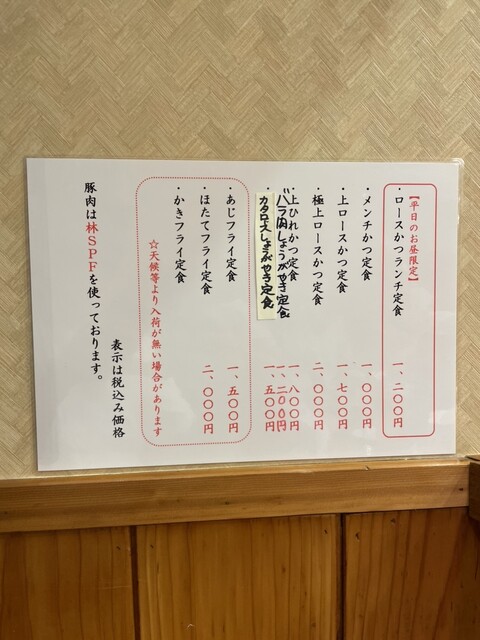 【平日のお昼限定】
・ロースかつランチ定食 一、二〇〇円
・メンチかつ定食 一、〇〇〇円
・上ロースかつ定食 一、七〇〇円
・極上ロースかつ定食 二、〇〇〇円
・上ひれかつ定食 一、八〇〇円
バラ肉しょうがやき定食 一、二〇〇円
カタロースしょうがやき定食 一、五〇〇円
・あじフライ定食 一、五〇〇円
・ほたてフライ定食 二、〇〇〇円
・かきフライ定食
☆天候等より入荷が無い場合があります
表示は税込み価格
豚肉は林SPFを使っております。